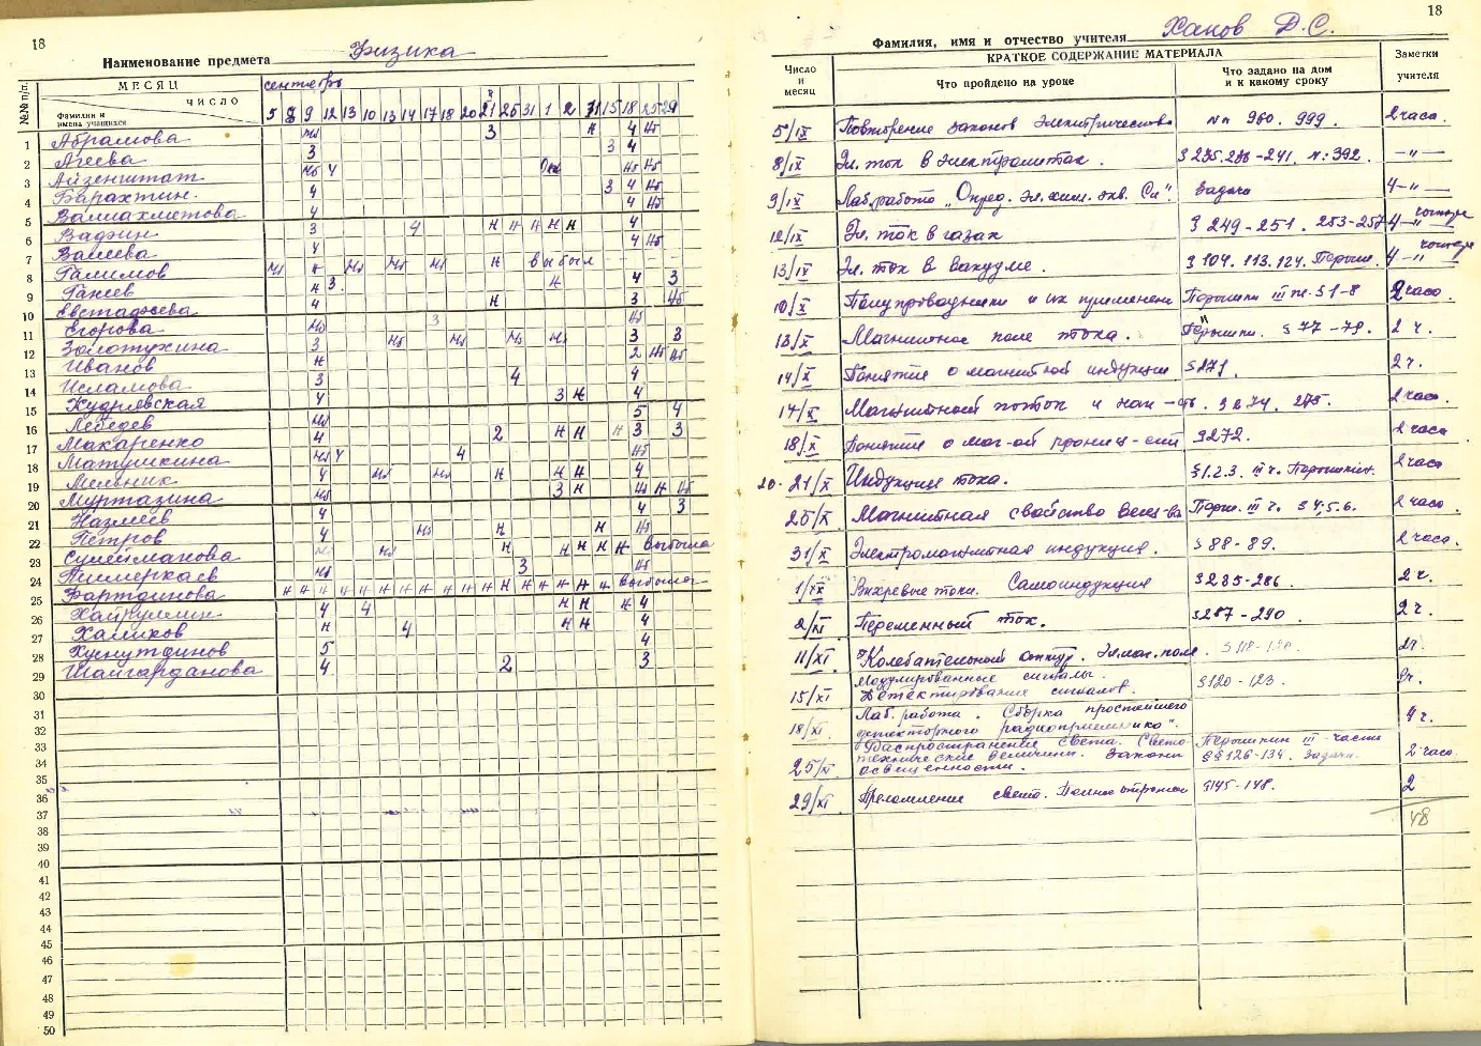 18
Наименование предмета Физика
№№ п/п.
МЕСЯЦ
сентябрь
ЧИСЛО
Фамилии и имена учащихся
5 8 9 12 13 10 13 14 17 18 20 21 25 31 1 2 11 15 18 25 29
1 Абрамова 3 н 4 нб
2 Агеева 3 3 4
3 Айзенштат нб 4 нб нб
4 Барахтин 4 3 4 нб
5 Валиахметова 4 4 нб
6 Вадзин 3 4 н н н н н 4
7 Валеева 4 4 нб
8 Галимов н выбыл
9 Ганеев н 3 н 4 3
10 Евстафьева 4 н 3 нб
11 Егорова нб 3 нб
12 Золотухина 3 3 3
13 Иванов н 2 нб нб
14 Исламова 3 4 4
15 Кудрявская 4 3 н 4
16 Лебедев 5 4
17 Макаренко 4 2 н н н 3 3
18 Матушкина нб 4 4 нб
19 Мельник 4 н н н 4
20 Муртазина нб 3 н нб н нб
21 Назмеев 4 4 3
22 Петров 4 н н нб
23 Сулейманова н н н н н выбыла
24 нб 3 нб
25 н н н н н н н н н н н н н н н н н н выбыла
26 Хайруллин 4 4 н н н 4
27 Халиков н 4 н н 4
28 Хуснутдинов 5 4
29 Шайгарданова 4 2 3
30
31
32
33
34
35
36
37
38
39
40
41
42
43
44
45
46
47
48
49
50
18
Фамилия, имя и отчество учителя Ханов Д.С.
Число и месяц
КРАТКОЕ СОДЕРЖАНИЕ МАТЕРИАЛА
Что пройдено на уроке
Что задано на дом и к какому сроку
Заметки учителя
5/IX Повторение законов электричества № 980. 999. 2 часа.
8/IX Эл. ток в электролитах. § 235. 236-241. №: 392. —"—
9/IX Лаб. работа „Опред. эл. хим. экв. Си". Задача 4 —"—
12/IX Эл. ток в газах § 249-251. 253-257 4 —"—
13/IX Эл. ток в вакууме. § 104. 113. 124. Перыш. 4 —"—
10/X Полупроводники и их применени Перышкин III ч. § 1-8 2 часа.
13/X Магнитное поле тока. Перышкин. § 77-79. 2 ч.
14/X Понятие о магнитной индукции § 271. 2 ч.
17/X Магнитный поток § 274. 275. 2 часа.
18/X Понятие о маг-ой прониц-сти § 272. 2 часа
20-21/X Индукция тока. § 1.2.3. III ч. Перышкин. 2 часа
25/X Магнитная свойство вещ-ва Перыш. III ч. § 4,5.6. 2 часа.
31/X Электромагнитная индукция. § 88-89. 2 часа.
1/XI Вихревые токи. Самоиндукция § 285-286. 2 ч.
2/XI Переменный ток. § 287-290 2 ч.
11/XI Колебательный контур. Эл.маг. поле. § 118-120. 2ч.
Модулированные сигналы.
15/XI Детектирование сигналов. § 120-123. 2ч.
Лаб. работа. Сборка простейшего
18/XI детекторного радиоприемника". 4 ч.
Распространение света. Свето- Перышкин III части
технические величины. Законы §§ 126-134. Задачи. 2 часа.
25/XI освещенности.
29/XI Преломление света. Полное отражен § 145-148. 2
48